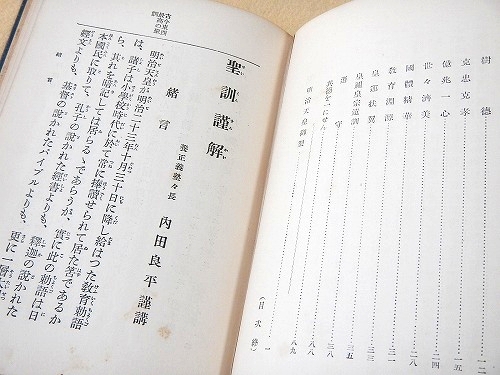 樹德……一二
克忠克孝……一五
億兆一心……二四
世々濟美……二八
國體精華……三一
教育淵源……三三
皇運扶翼……三五
皇祖皇宗遺訓……三八
遵守……八八
咸德を一にせん……八九
明治天皇御製……一
(目次終)
聖訓謹解
養正義塾々長 内田良平謹講
緒言
明治天皇が明治二十三年十月三十日に降し給はつた教育勅語
は、諸子は小學校時代に於て常に捧讀せられて居た筈であるか
ら、其れを暗記しては居らるゝであらうが、實に此の勅語は日
本國民に取りて、孔子の説かれた經書よりも、釋迦の説かれた
經文よりも、基督の説かれたバイブルよりも、更に一層
緒言